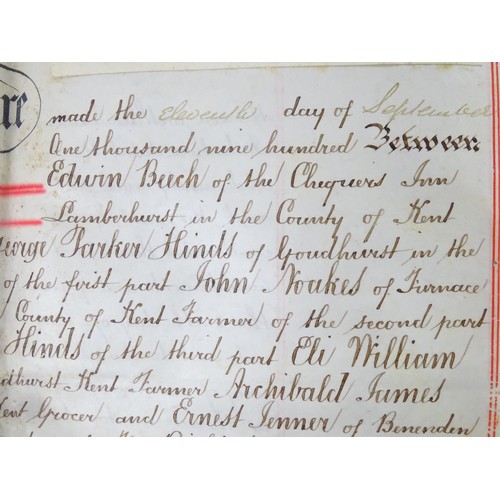 made the eleventh day of September
One thousand nine hundred Between
Edwin Beech of the Chequers Inn
Lamberhurst in the County of Kent
George Parker Hinds of Goudhurst in the
of the first part John Noakes of Furnace
County of Kent Farmer of the second part
Hinds of the third part Eli William
Kent Farmer Archibald James
Kent Grocer and Ernest Jenner of Benenden